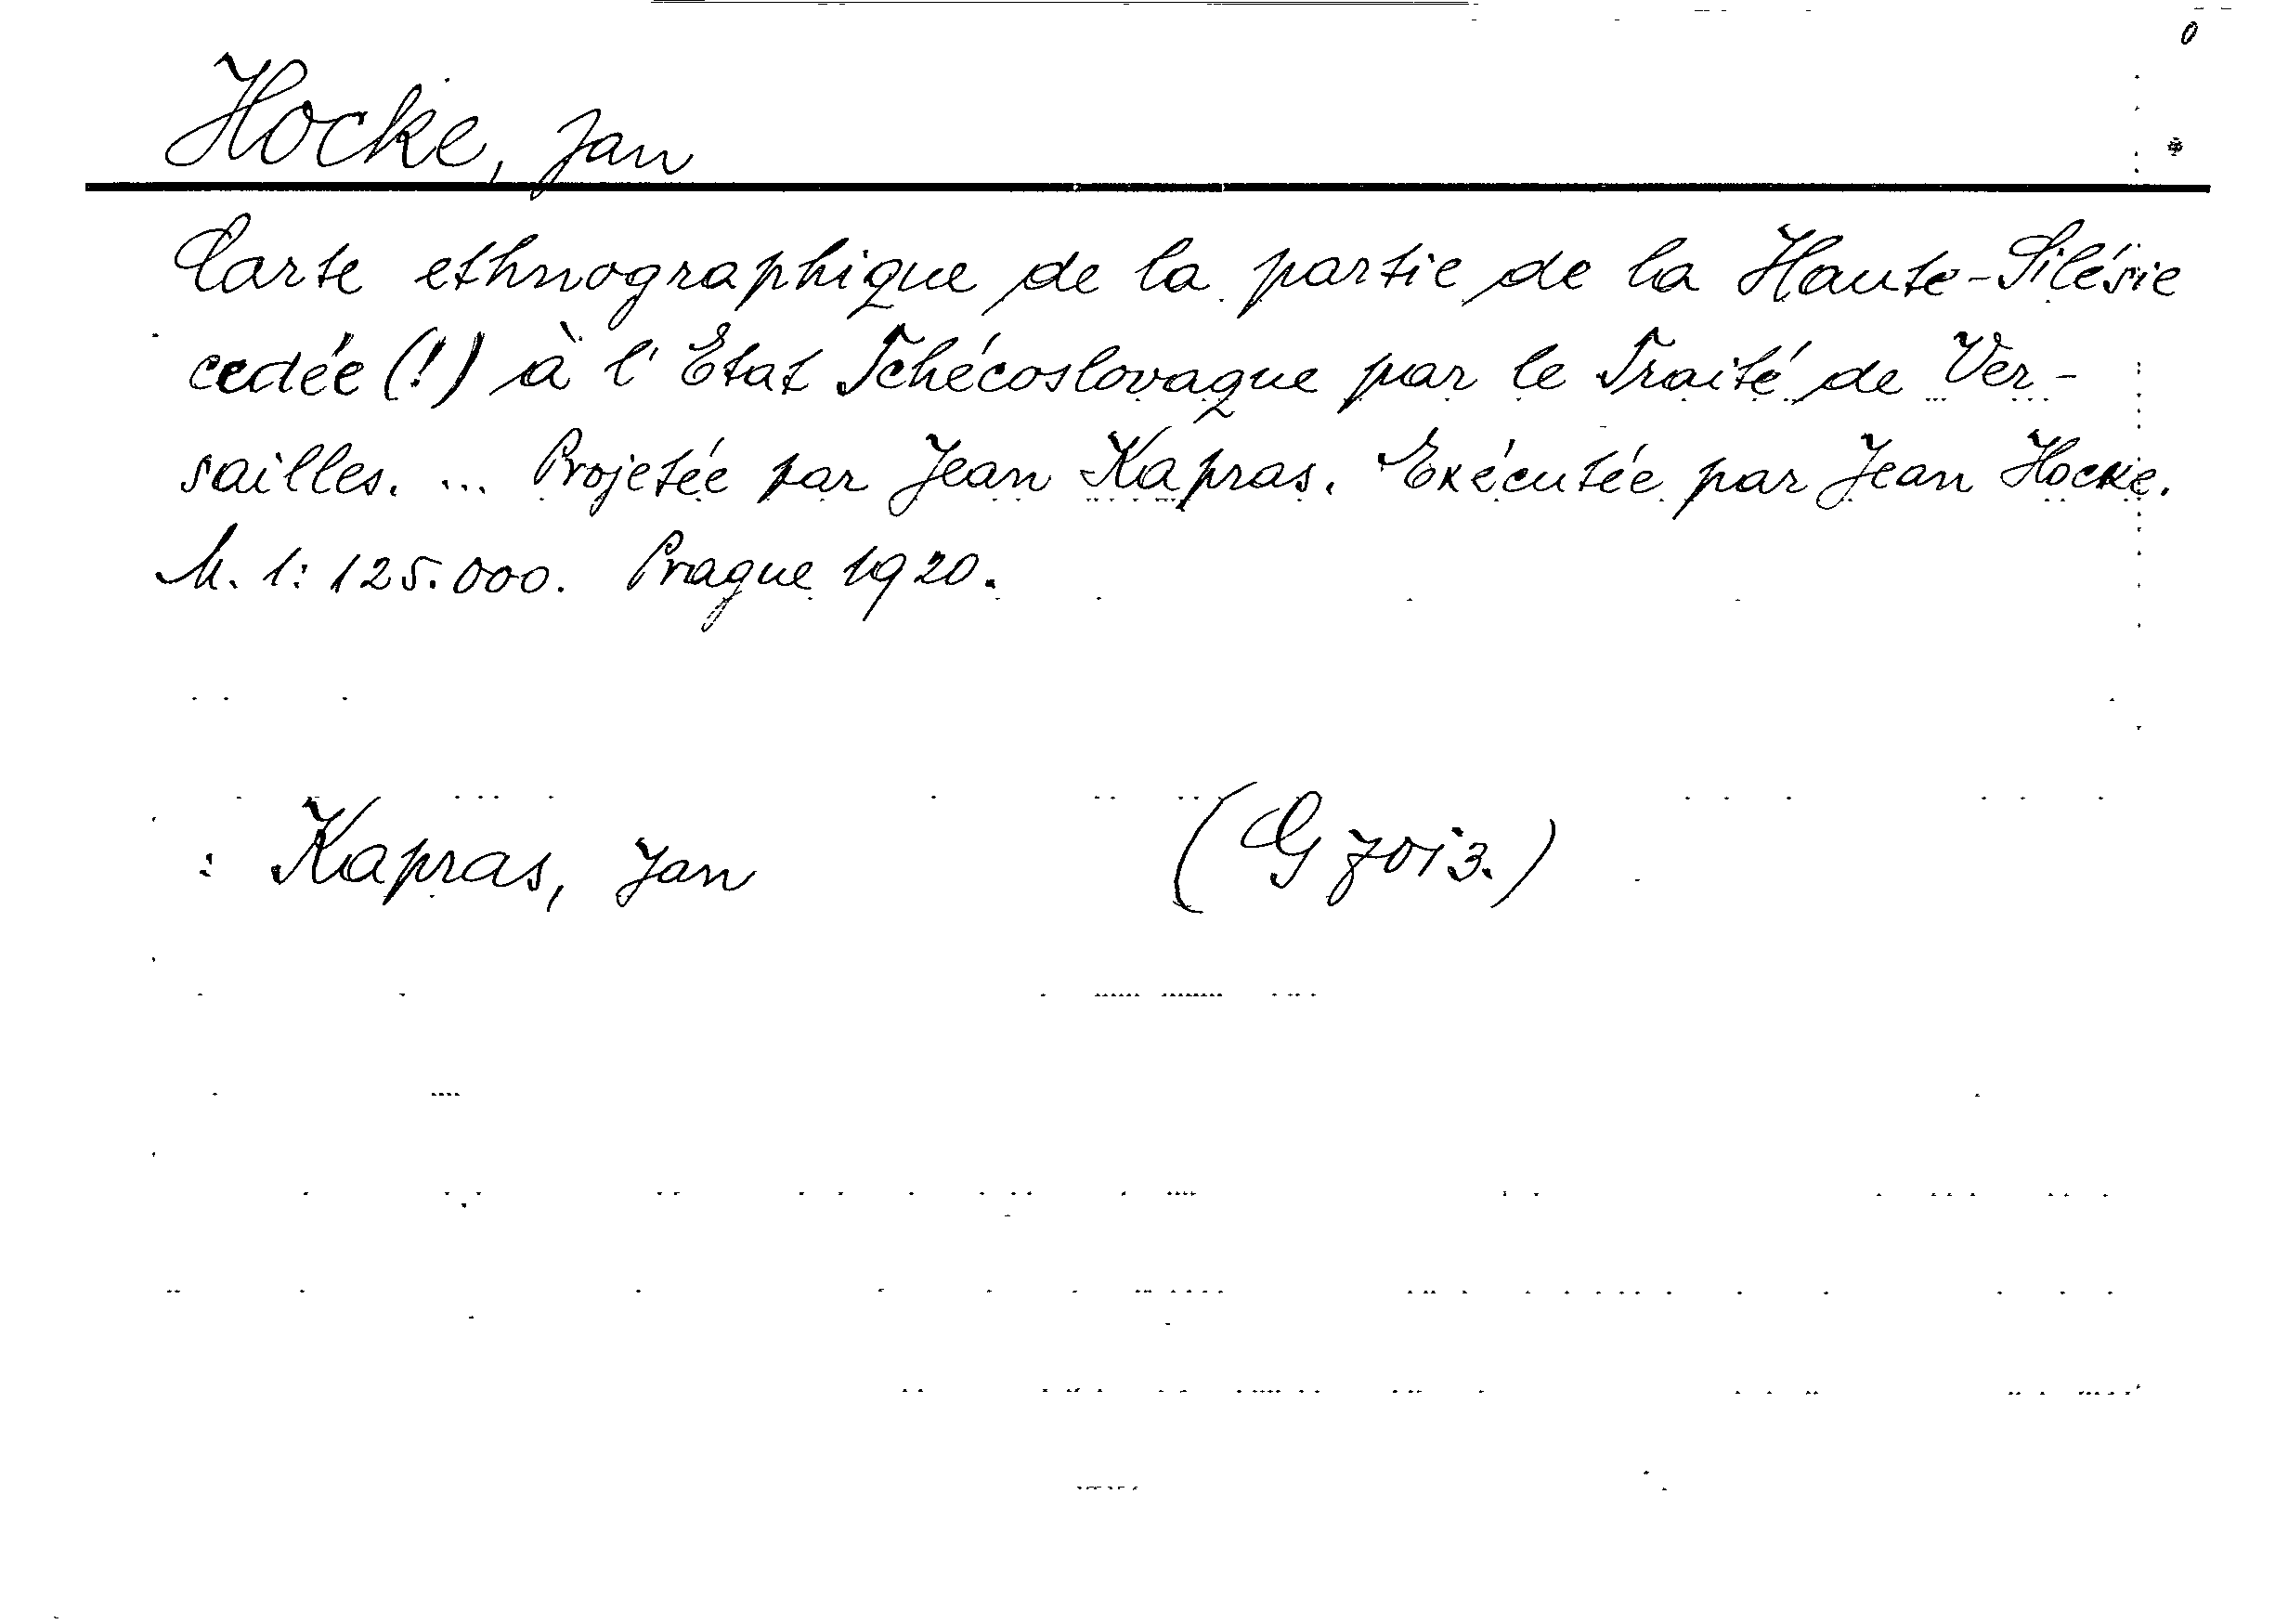 Hocke, Jan
Carte ethnographique de la partie de la Haute-Silésie
cedée (!) à l'Etat Tchécoslovaque par le Traité de Ver-
sailles. ... Projetée par Jean Kapras. Exécutée par Jean Hocke.
M. 1:125.000. Prague 1920.
: Kapras, Jan